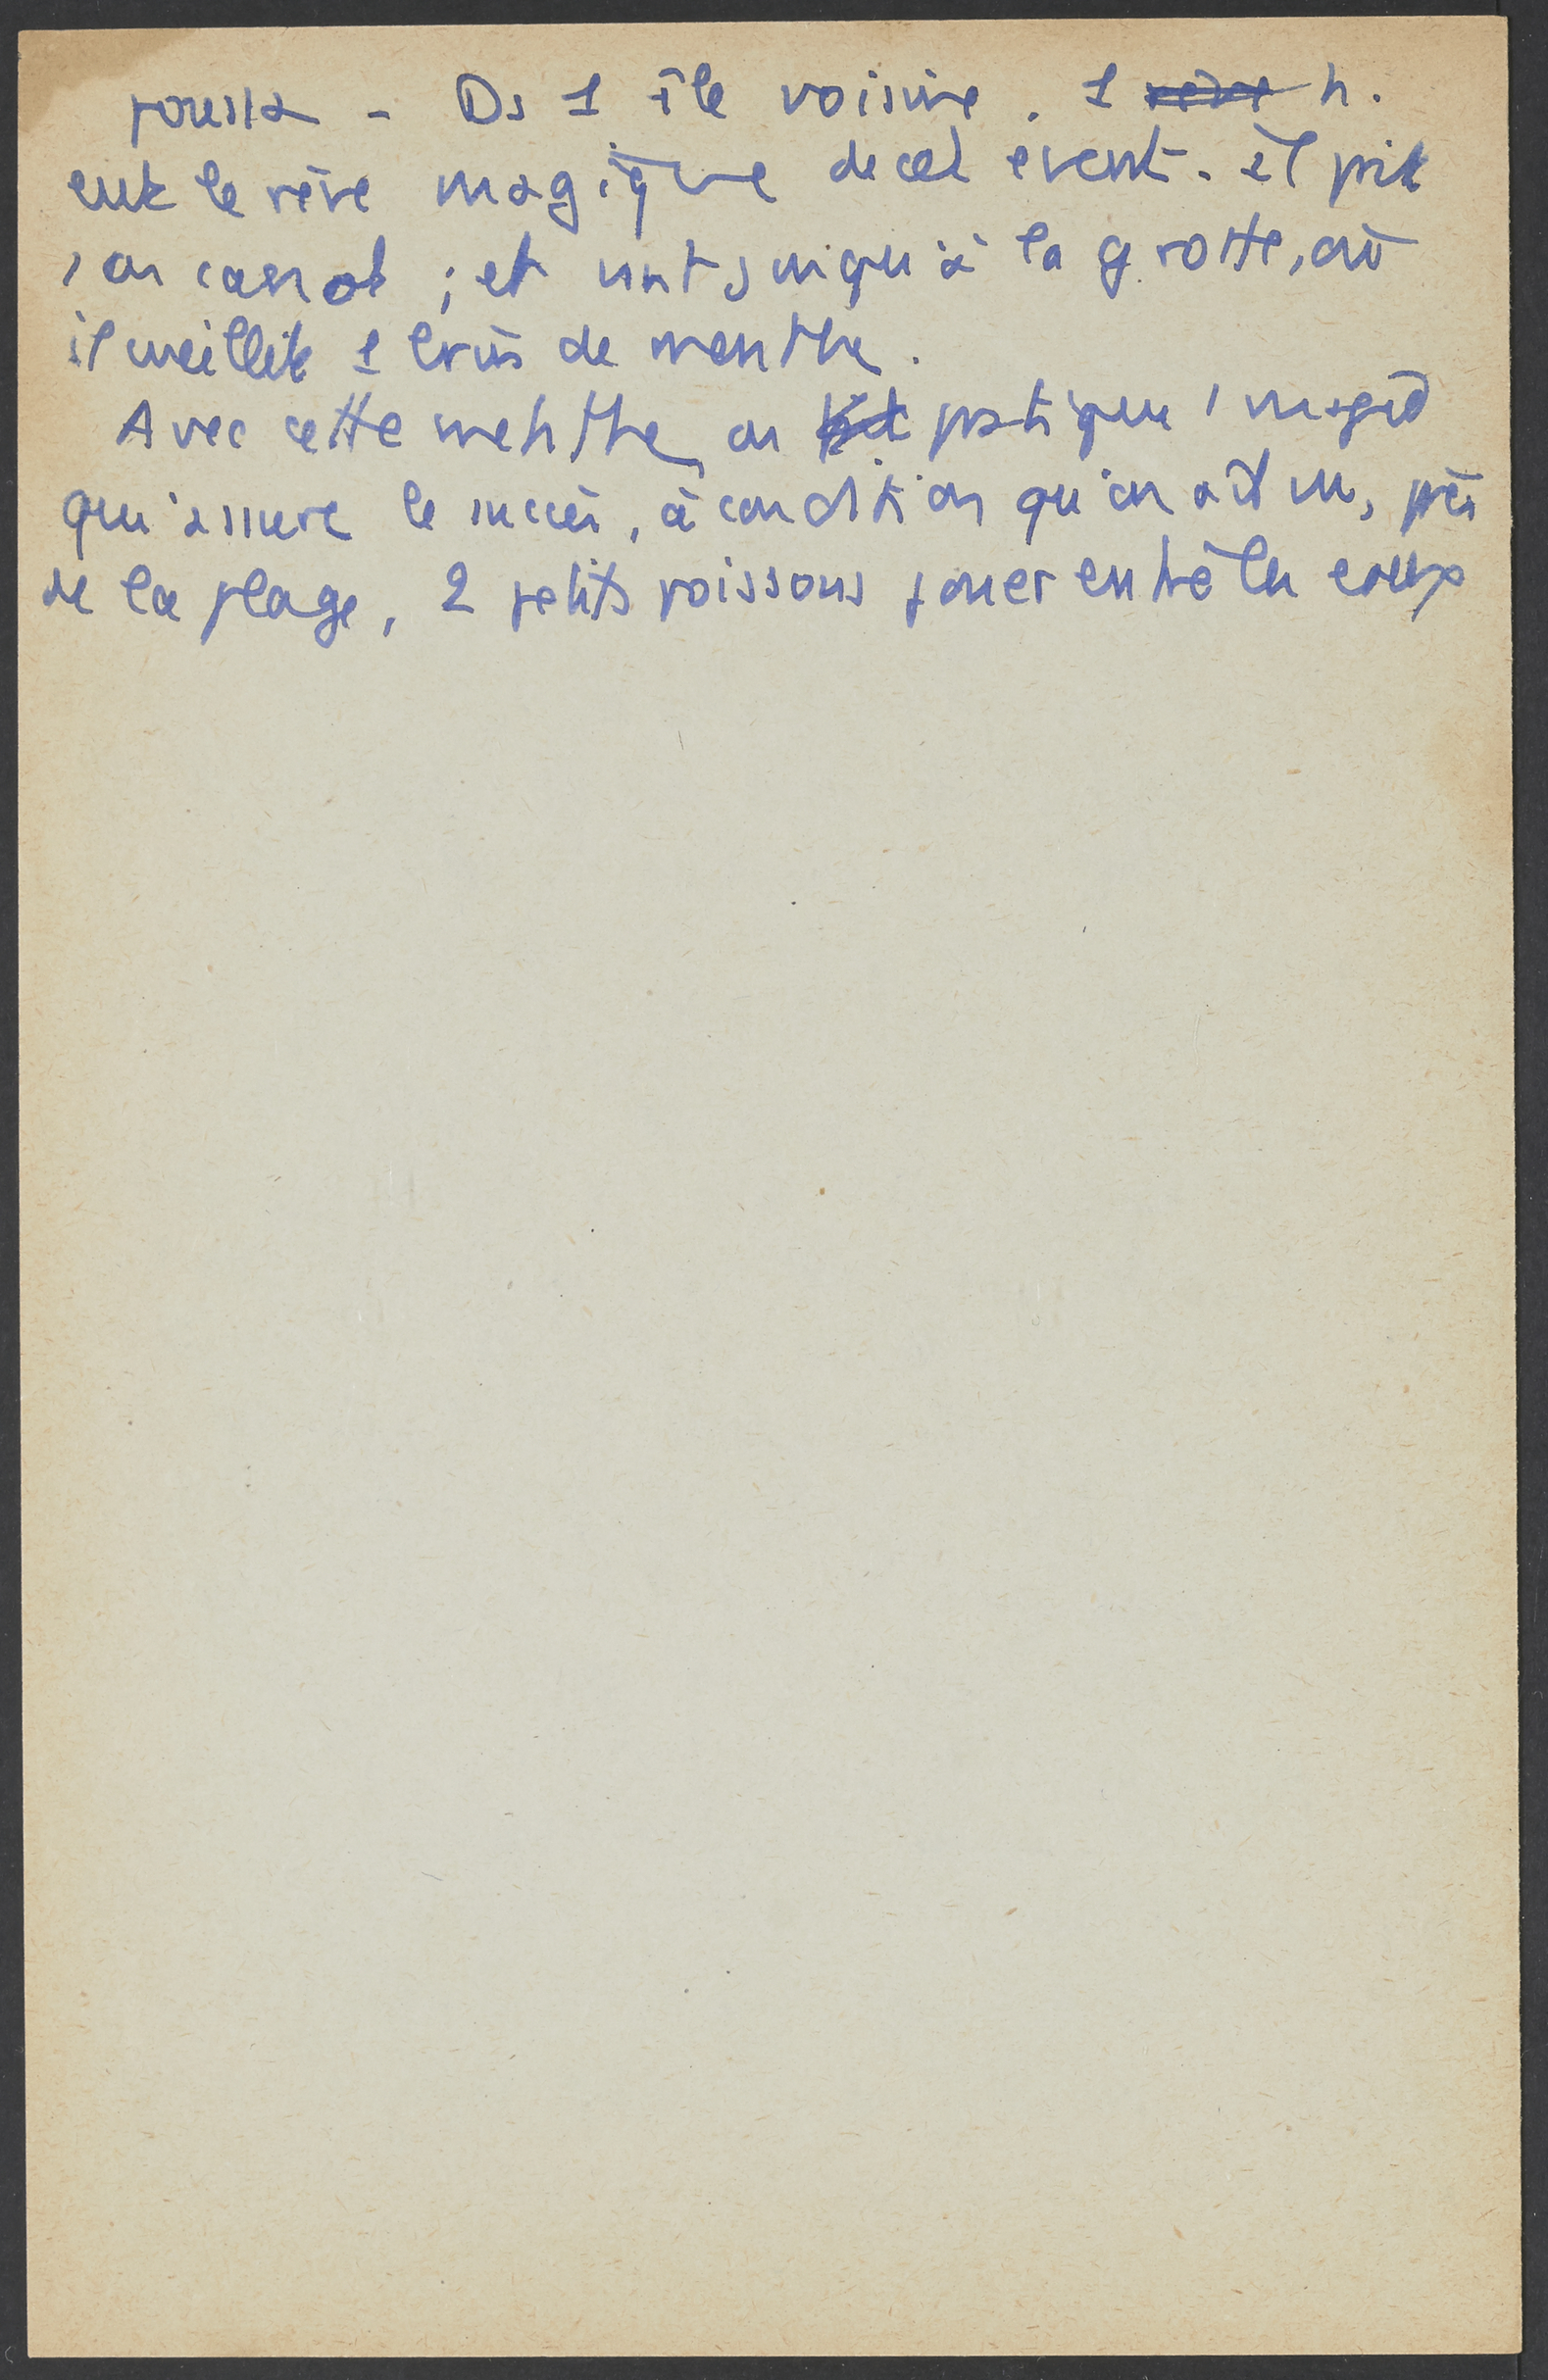 poussa - Ds 1 île voisine. 1 rêve h.
eut le rêve magique de cet event. il prit
son canot ; et vint jusqu'à la grotte, où
il cueillit 1 brin de menthe.
Avec cette menthe on fait pratique 1 magie
qui assure le succès, à condition qu'on ait vu, près
de la plage, 2 petits poissons jouer entre eux